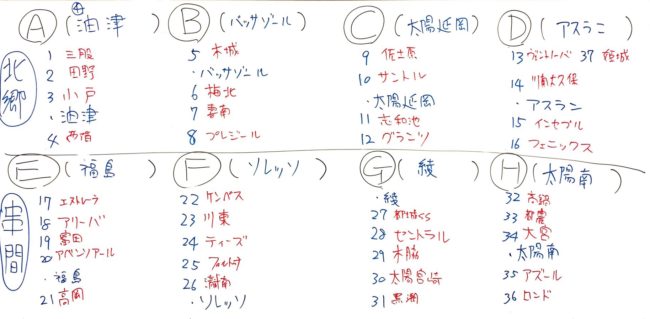 北郷
A (油津)
1 三股
2 田野
3 小戸
・油津
4 西階
B (バッサゾール)
5 木城
・バッサゾール
6 梅北
7 妻南
8 プレジール
C (太陽延岡)
9 佐土原
10 サントル
・太陽延岡
11 志和池
12 グランツ
D (アスラン)
13 ヴェントノーバ 37
14 川南大久保
・アスラン
15 インセプル
16 フェニックス
串間
E (福島)
17 エストレーラ
18 アリーバ
19 富田
20 アベンソアール
・福島
21 高岡
F (ソレッソ)
22 ケンペス
23 川東
24 ティーズ
25
26 瀬南
・ソレッソ
G (綾)
・綾
27 都城CS
28 セントラル
29 木脇
30 太陽宮崎
31 黒潮
H (太陽南)
32 本郷
33
34 大宮
・太陽南
35 アズール
36 ロンド